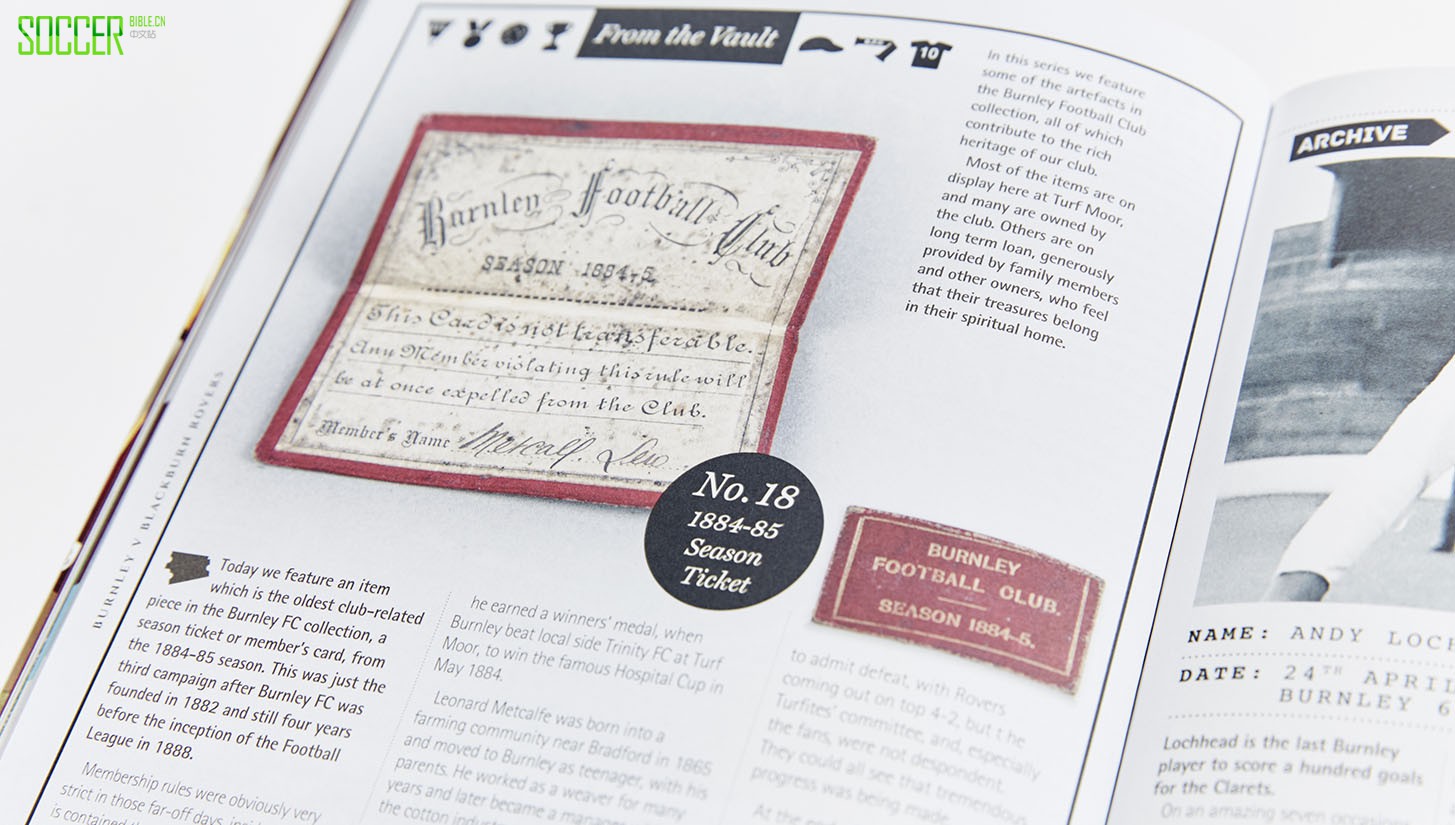 SOCCER
BIBLE.CN
中文站
From the Vault
10
In this series we feature
some of the artefacts in
the Burnley Football Club
collection, all of which
contribute to the rich
heritage of our club.
Most of the items are on
display here at Turf Moor,
and many are owned by
the club. Others are on
long term loan, generously
provided by family members
and other owners, who feel
that their treasures belong
in their spiritual home.
Burnley Football Club
SEASON 1884-5
This Card is not transferable.
Any Member violating this rule will
be at once expelled from the Club.
Member's Name Metcalf. Leo
No. 18
1884-85
Season
Ticket
BURNLEY
FOOTBALL CLUB.
SEASON 1884-5.
BURNLEY V BLACKBURN ROVERS
Today we feature an item
which is the oldest club-related
piece in the Burnley FC collection, a
season ticket or member's card, from
the 1884-85 season. This was just the
third campaign after Burnley FC was
founded in 1882 and still four years
before the inception of the Football
League in 1888.
Membership rules were obviously very
strict in those far-off days,
is contained
he earned a winners' medal, when
Burnley beat local side Trinity FC at Turf
Moor, to win the famous Hospital Cup in
May 1884.
Leonard Metcalfe was born into a
farming community near Bradford in 1865
and moved to Burnley as teenager, with his
parents. He worked as a weaver for many
years and later became a
the cotton
to admit defeat, with Rovers
coming out on top 4-2, but t he
Turfites' committee, and, especially
the fans, were not despondent.
They could all see that tremendous
progress was being made.
At the
ARCHIVE
NAME: ANDY LOCH
DATE: 24TH APRIL
BURNLEY 6
Lochhead is the last Burnley
player to score a hundred goals
for the Clarets.
On an amazing seven occasions